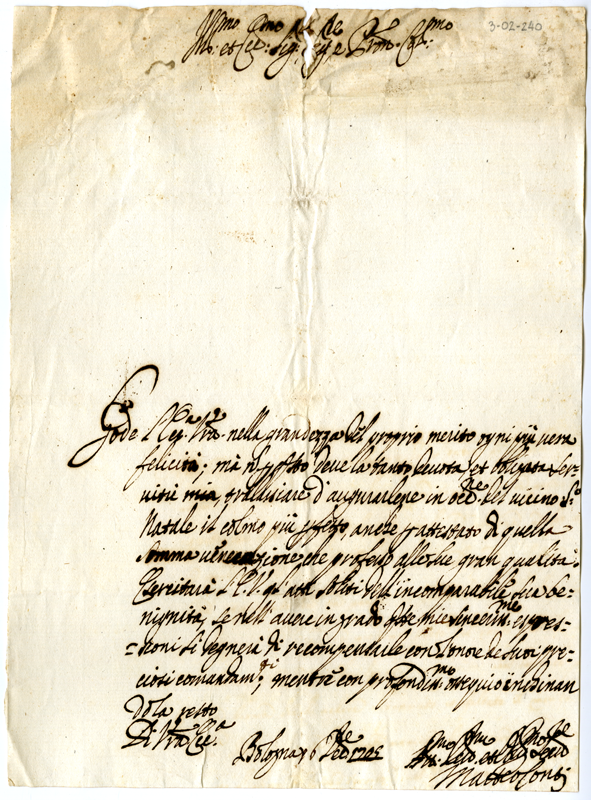 Ill.mo
et Ecc. Sig. Sig. e Pron. Col.mo
3-02-240
Gode L'Ecc.a Vra. nella grandezza del proprio merito ogni più vera
felicità; mà nō p̄ q̄sto deve la tanto devota, et obligata ser-
vitù mia, tralasciare d'augurarlene in occ.ne del vicino S.to
Natale il colmo più p̄fetto, anche p̄ attestato di quella
somma venerazione che professo alle sue gran qualità.
Eserciterà L'E.V. gl'atti soliti dell'incomparabile sua be-
nignità, se nell'avere in grado q̄ste mie sinceris.me espres-
=sioni si degnerà di ricompensarle con l'onore de suoi pre-
ciosi comandam.ti; mentre con profondis.mo ossequio inchinan
dola resto
Di Vra. Ecc.a
Bologna 6 Xbre 1702
Matteo Conti